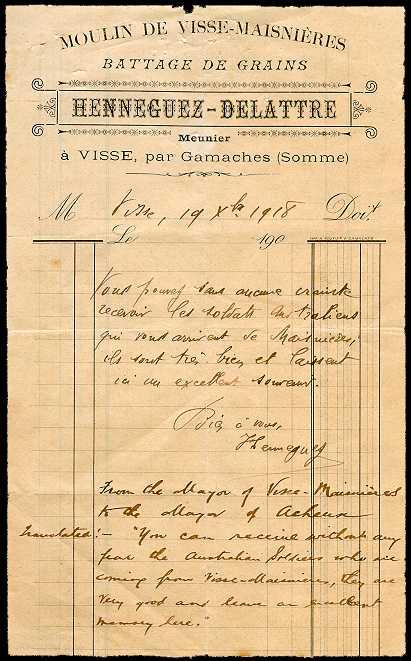 MOULIN DE VISSE-MAISNIÈRES
BATTAGE DE GRAINS
HENNEGUEZ-DELATTRE
Meunier
à VISSE, par Gamaches (Somme)
M Visse, 19 Xbre 1918 Doit
Le 190
Vous pouvez sans aucune crainte
recevoir les soldats Australiens
qui vous arrivent de Maisnières,
ils sont très bien et laissent
ici un excellent souvenir.
Bien à vous,
Henneguez
From the Mayor of Visse-Maisnières
to the Mayor of Acheux
Translated:- "You can receive without any
fear the Australian Soldiers who are
coming from Visse-Maisnières, they are
very good and leave an excellent
memory here."